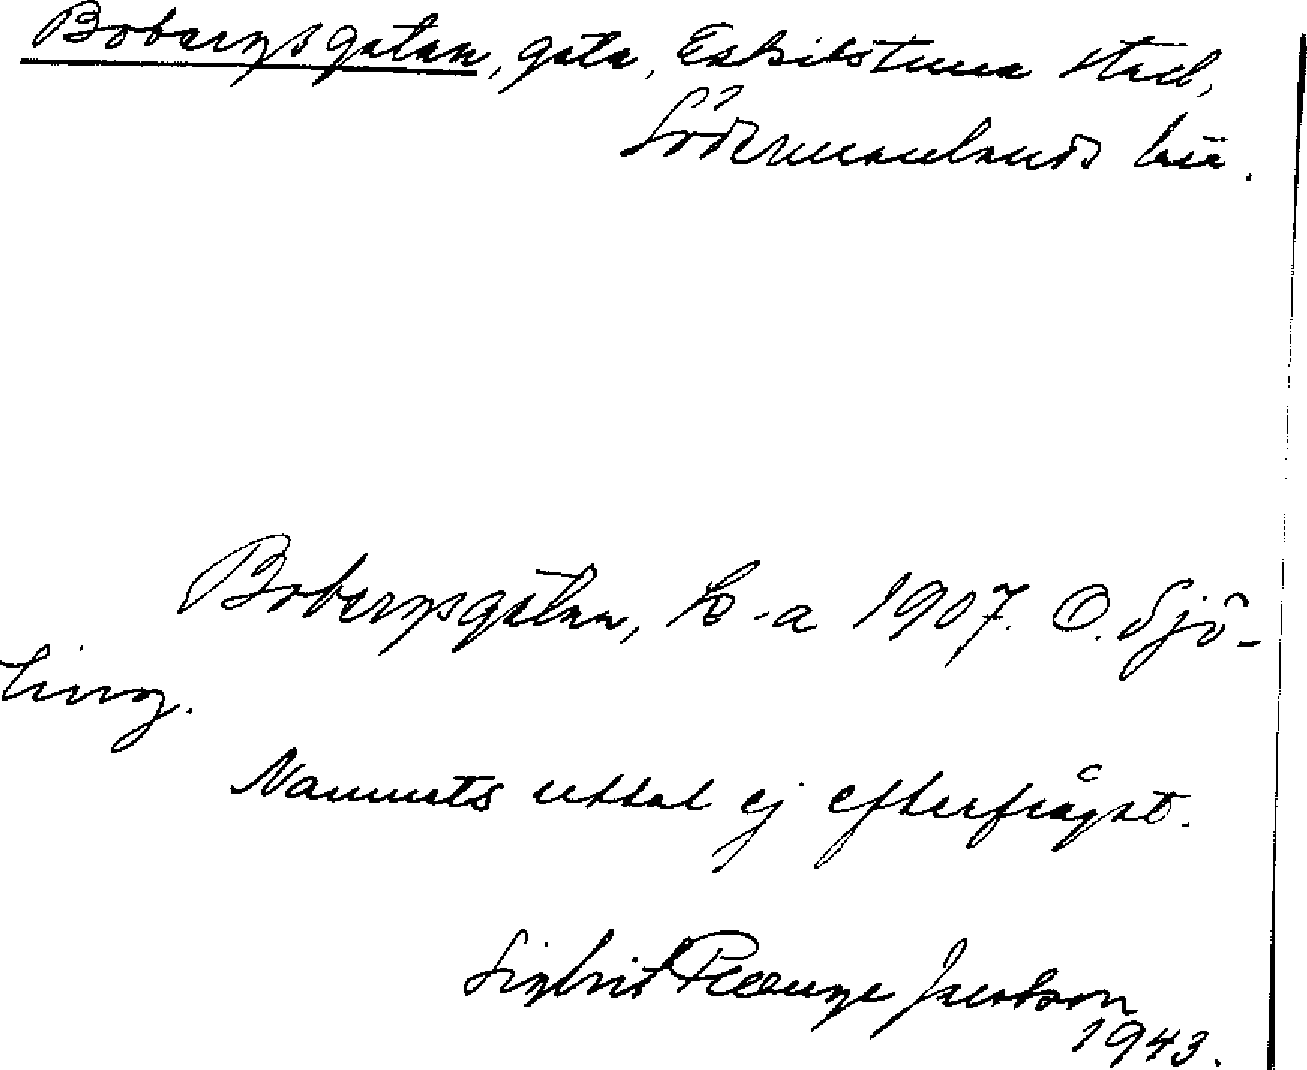 Bobergsgatan, gata, Eskilstuna stad,
Södermanlands län.
Bobergsgatan, ka 1907. O. Sjö-
ling.
Namnets uttal ej efterfrågat.
Sigbrit Plænge Jacobson
1943.